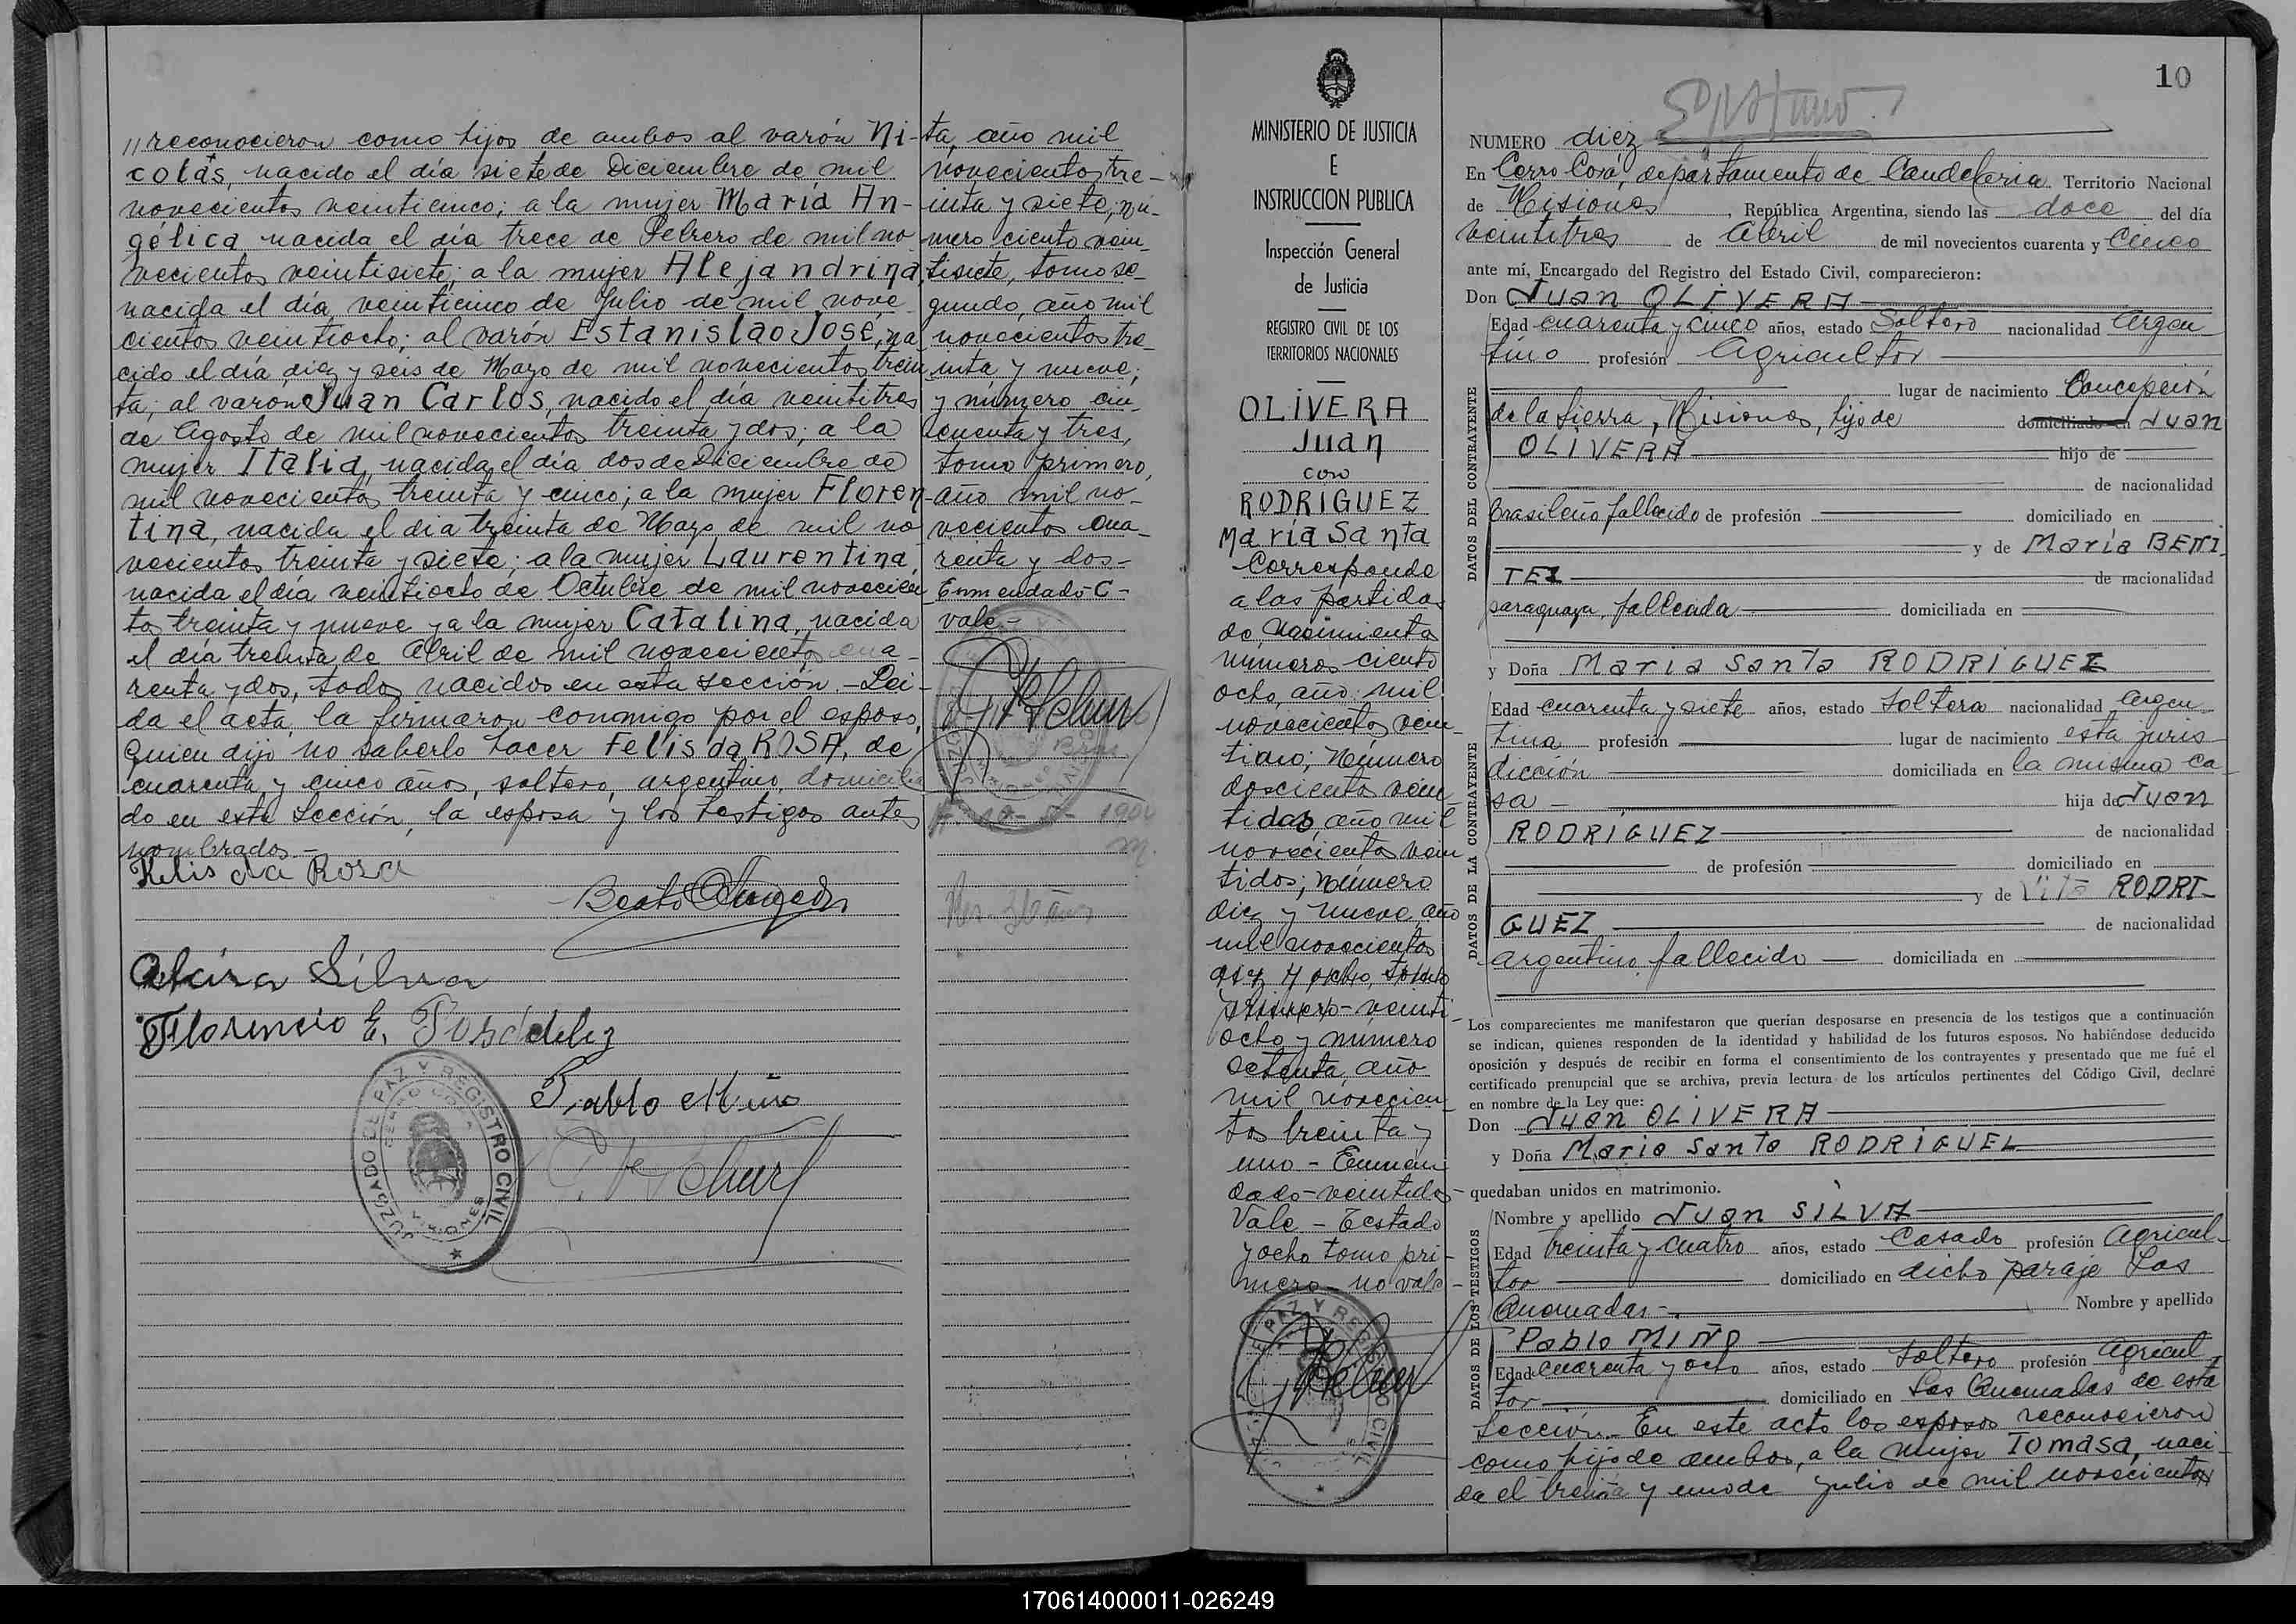 //reconocieron como hijos de ambos al varón Ni-
colás, nacido el día siete de Diciembre de mil
novecientos veinticinco; a la mujer María An-
gélica nacida el día trece de Febrero de mil no
vecientos veintisiete; a la mujer Alejandrina,
nacida el día veinticinco de Julio de mil nove
cientos veintiocho; al varón Estanislao José, na
cido el día diez y seis de Mayo de mil novecientos trein
ta; al varón Juan Carlos, nacido el día veintitres
de Agosto de mil novecientos treinta y dos; a la
mujer Italia, nacida el día dos de Diciembre de
mil novecientos treinta y cinco; a la mujer Floren
tina, nacida el día treinta de Mayo de mil no
vecientos treinta y siete; a la mujer Laurentina,
nacida el día veintiocho de Octubre de mil novecien
tos treinta y nueve y a la mujer Catalina, nacida
el día treinta de Abril de mil novecientos cua-
renta y dos, todos nacidos en esta sección.- Leí-
da el acta, la firmaron conmigo por el esposo,
quien dijo no saberlo hacer Felis da ROSA, de
cuarenta y cinco años, soltero, argentino, domicilia
do en esta Sección, la esposa y los testigos antes
nombrados.-
Felis da Rosa
Silva
Florencio E.
Pablo Miño
JUZGADO DE PAZ Y REGISTRO CIVIL
CERRO CORA
MISIONES
ta, año mil
novecientos tre-
inta y siete; nú-
mero ciento vein-
tisiete, tomo se-
gundo, año mil
novecientos tre-
inta y nueve;
y número cin-
cuenta y tres,
tomo primero,
año mil no-
vecientos cua-
renta y dos-
Enmendado-C-
vale.-
MINISTERIO DE JUSTICIA
E
INSTRUCCION PUBLICA
Inspección General
de Justicia
REGISTRO CIVIL DE LOS
TERRITORIOS NACIONALES
OLIVERA
Juan
con
RODRIGUEZ
María Santa
Corresponde
a las partidas
de Nacimientos
números ciento
ocho, año mil
novecientos vein-
tiuno; Número
doscientos vein-
tidos, año mil
novecientos vein
tidos; Número
diez y nueve, año
mil novecientos
diez y ocho, tomo
primero-veinti-
ocho y número
setenta, año
mil novecien
tos treinta y
uno - Enmen
dado-veintidos-
Vale - Testado
y ocho tomo pri-
mero - no vale-
10
NUMERO diez
En Cerro Corá, departamento de Candelaria Territorio Nacional
de Misiones, República Argentina, siendo las doce del día
veintitres de Abril de mil novecientos cuarenta y Cinco
ante mí, Encargado del Registro del Estado Civil, comparecieron:
Don Juan OLIVERA
DATOS DEL CONTRAYENTE
Edad cuarenta y cinco años, estado Soltero nacionalidad Argen
tino profesión Agricultor
lugar de nacimiento Concepción
de la Sierra, Misiones, hijo de domiciliado en Juan
OLIVERA hijo de
de nacionalidad
brasileño fallecido de profesión domiciliado en
y de María BENI
TEZ de nacionalidad
paraguaya, fallecida domiciliada en
y Doña María Santa RODRIGUEZ
DATOS DE LA CONTRAYENTE
Edad cuarenta y siete años, estado Soltera nacionalidad Argen
tina profesión lugar de nacimiento esta juris
dicción domiciliada en la misma ca-
sa - hija de Juan
RODRIGUEZ de nacionalidad
de profesión domiciliado en
y de Vita RODRI-
GUEZ de nacionalidad
argentino, fallecido domiciliada en
Los comparecientes me manifestaron que querían desposarse en presencia de los testigos que a continuación
se indican, quienes responden de la identidad y habilidad de los futuros esposos. No habiéndose deducido
oposición y después de recibir en forma el consentimiento de los contrayentes y presentado que me fué el
certificado prenupcial que se archiva, previa lectura de los artículos pertinentes del Código Civil, declaré
en nombre de la Ley que:
Don Juan OLIVERA
y Doña María Santa RODRIGUEZ
quedaban unidos en matrimonio.
DATOS DE LOS TESTIGOS
Nombre y apellido Juan SILVA
Edad treinta y cuatro años, estado Casado profesión Agricul-
tor domiciliado en dicho paraje Las
Quemadas.- Nombre y apellido
Pablo MIÑO
Edad cuarenta y ocho años, estado Soltero profesión Agricul
tor domiciliado en Las Quemadas de esta
Sección.- En este acto los esposos reconocieron
como hijo de ambos, a la mujer Tomasa, naci-
da el treinta y uno de Julio de mil novecientos
170614000011-026249